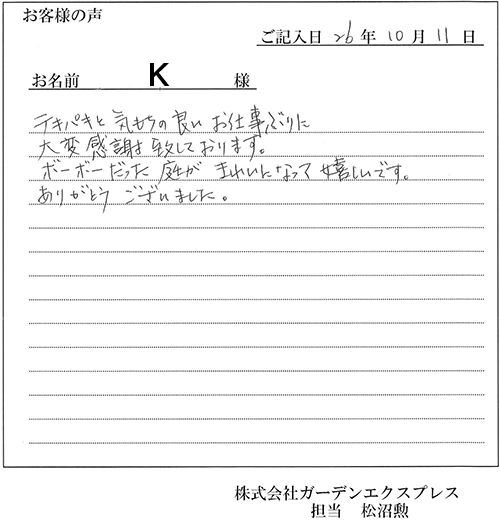 お客様の声
ご記入日 26年 10月 11日
お名前 K 様
テキパキと気もちの良いお仕事ぶりに
大変感謝は致しております。
ボーボーだった庭がきれいになって嬉しいです。
ありがとうございました。
株式会社ガーデンエクスプレス
担当 松沼勲